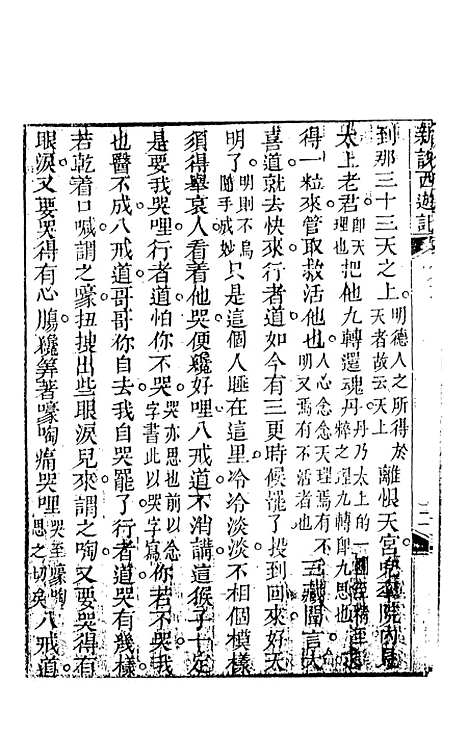 新說西遊記
到那三十三天之上明德人之所得於天者故云天上離恨天宮兜率院內見
太上老君即天理也把他九轉還魂丹丹乃太上的一粹之理九轉即九思也
得一粒來管取救活他也人心念念天理焉有不明又焉有不活者也三藏聞言大
喜道就去快來行者道如今有三更時候罷了投到回來好天
明了明則不鳥隨手成妙只是這個人睡在這里冷冷淡淡不相個模樣
須得舉哀人看着他哭便纔好哩八戒道不消講這猴子十定
是要我哭哩行者道怕你不哭哭亦思也前以念字書此以哭字寫你若不哭我
也醫不成八戒道哥哥你自去我自哭罷了行者道哭有幾樣
若乾着口喊謂之嚎扭搜出些眼淚兒來謂之啕又要哭得有
眼淚又要哭得有心腸纔算著嚎啕痛哭哩哭至嚎啕思之切矣八戒道